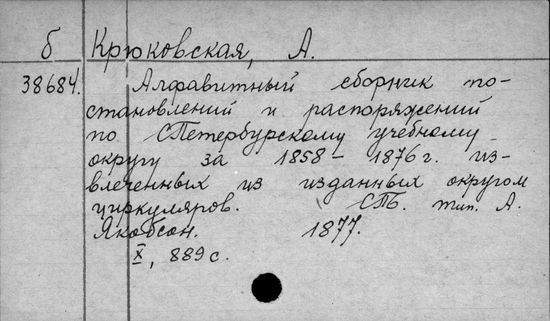 б Крюковская, А.
38684. Алфавитный сборник по-
становлений и распоряжений
по СПетербурскому учебному
округу за 1858 – 1876 г. из-
влеченных из изданных округом
циркуляров. СПБ. тип. А.
Якобсон. 1877.
X, 889 с.